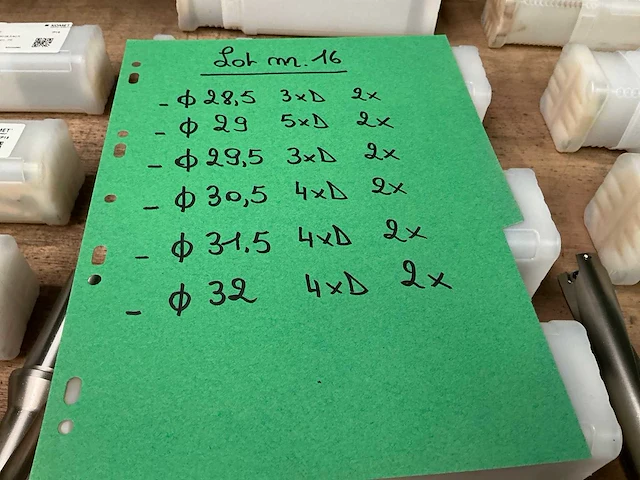 KOMET
Lot m. 16
- φ 28,5 3xD 2x
- φ 29 5xD 2x
- φ 29,5 3xD 2x
- φ 30,5 4xD 2x
- φ 31.5 4xD 2x
- φ 32 4xD 2x